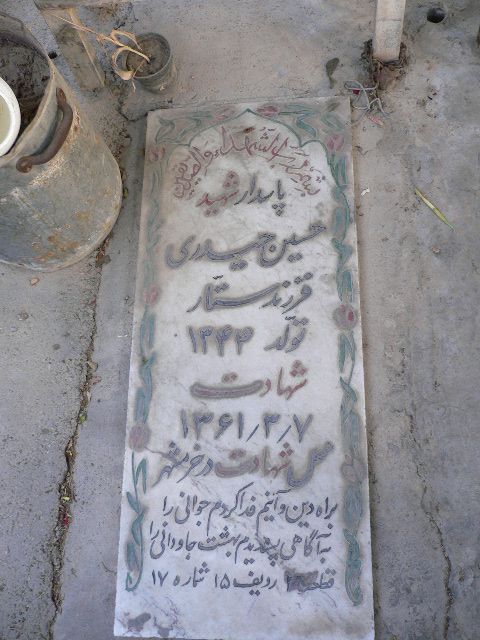 بنام رب الشهداء والصدیقین
پاسدار شهید
حسین حیدری
فرزند ستار
تولد ۱۳۴۳
شهادت
۱۳۶۱/۳/۷
محل شهادت در خرمشهر
براه دین و آئینم فدا کردم جوانی را
به آگاهی پسندیدم بهشت جاودانی را
قطعه ردیف ۱۵ شماره ۱۷